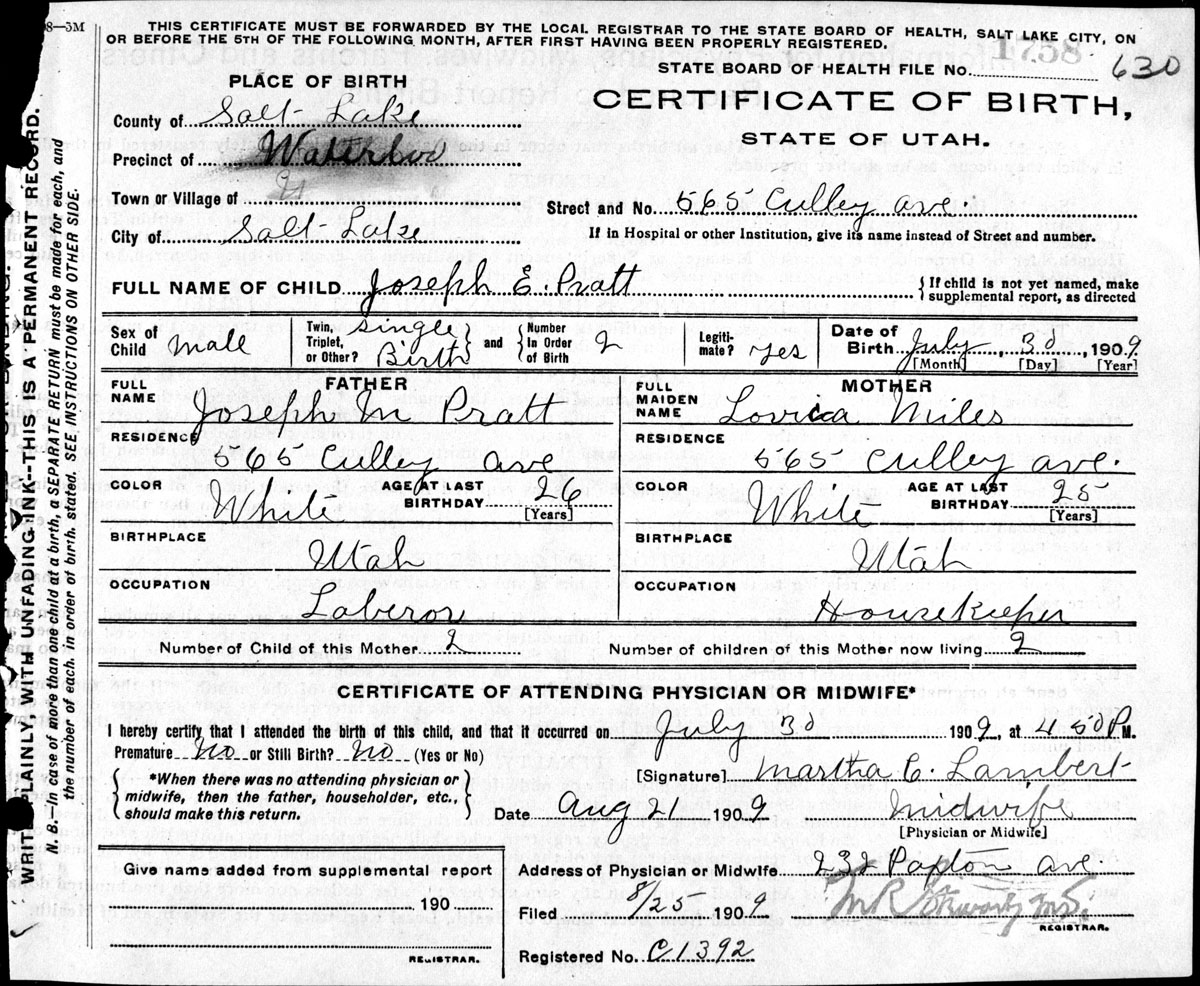 98—5M
THIS CERTIFICATE MUST BE FORWARDED BY THE LOCAL REGISTRAR TO THE STATE BOARD OF HEALTH, SALT LAKE CITY, ON
OR BEFORE THE 5TH OF THE FOLLOWING MONTH, AFTER FIRST HAVING BEEN PROPERLY REGISTERED.
1758
STATE BOARD OF HEALTH FILE No. 630
PLACE OF BIRTH
CERTIFICATE OF BIRTH,
STATE OF UTAH.
County of Salt Lake
Precinct of
Town or Village of
Street and No. 565 Culley ave.
City of Salt Lake
If in Hospital or other Institution, give its name instead of Street and number.
FULL NAME OF CHILD Joseph E. Pratt
{ If child is not yet named, make
supplemental report, as directed
Sex of Child Male
Twin, Triplet, or Other? Single Birth } and { Number In Order of Birth 2
Legiti-mate? Yes
Date of Birth July, 3d, 1909
[Month] [Day] [Year]
FATHER
FULL NAME Joseph M Pratt
RESIDENCE 565 Culley ave
COLOR White AGE AT LAST BIRTHDAY 26 [Years]
BIRTHPLACE Utah
OCCUPATION Laberor
MOTHER
FULL MAIDEN NAME Lovica Miles
RESIDENCE 565 Culley ave.
COLOR White AGE AT LAST BIRTHDAY 25 [Years]
BIRTHPLACE Utah
OCCUPATION Housekieper
Number of Child of this Mother 2 Number of children of this Mother now living 2
CERTIFICATE OF ATTENDING PHYSICIAN OR MIDWIFE*
I hereby certify that I attended the birth of this child, and that it occurred on July 3d 1909, at 4 50 P M.
Premature No or Still Birth? No (Yes or No)
{ *When there was no attending physician or
midwife, then the father, householder, etc.,
should make this return. }
[Signature] Martha C. Lambert
Date Aug 21 1909 Midwife
[Physician or Midwife]
Address of Physician or Midwife 232 Paxton ave.
Filed 8/25 1909 M R Stewart M.D.
REGISTRAR.
Registered No. C1392
Give name added from supplemental report
190
REGISTRAR.
WRITE PLAINLY, WITH UNFADING INK--THIS IS A PERMANENT RECORD.
N. B.—In case of more than one child at a birth, a SEPARATE RETURN must be made for each, and
the number of each, in order of birth, stated. SEE INSTRUCTIONS ON OTHER SIDE.